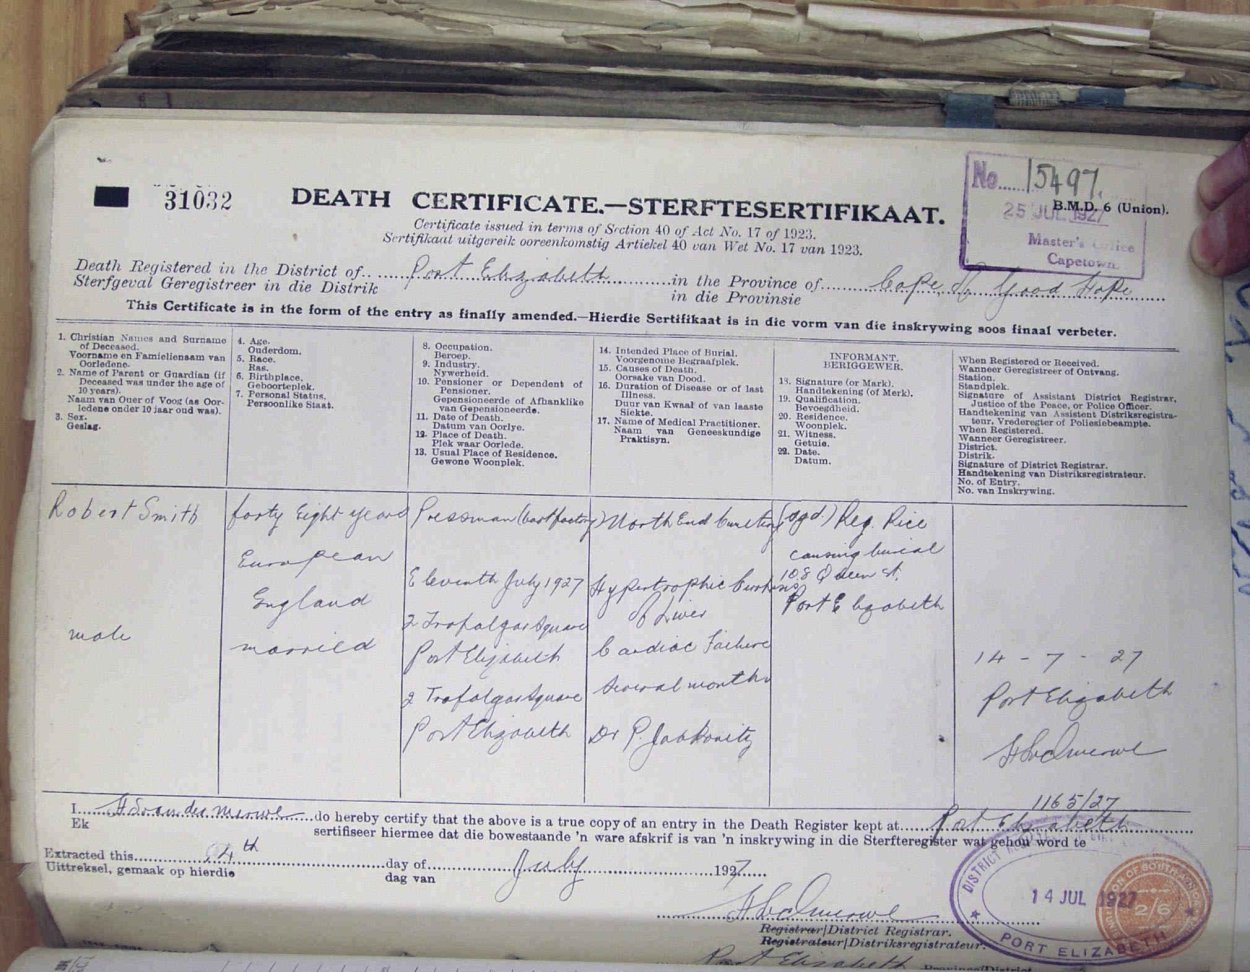 31032
DEATH CERTIFICATE.—STERFTESERTIFIKAAT.
No. 15497.
25 JUL 1927
Master's Office
Capetown.
B.M.D. 6 (Union).
Certificate issued in terms of Section 40 of Act No. 17 of 1923.
Sertifikaat uitgereik ooreenkomstig Artiekel 40 van Wet No. 17 van 1923.
Death Registered in the District of Port Elizabeth in the Province of Cape of Good Hope
Sterfgeval Geregistreer in die Distrik in die Provinsie
This Certificate is in the form of the entry as finally amended.—Hierdie Sertifikaat is in die vorm van die inskrywing soos finaal verbeter.
1. Christian Names and Surname
of Deceased.
Voorname en Familienaam van
Oorledene.
2. Name of Parent or Guardian (if
Deceased was under the age of
10 years).
Naam van Ouer of Voog (as Oor-
ledene onder 10 jaar oud was).
3. Sex.
Geslag.
4. Age.
Ouderdom.
5. Race.
Ras.
6. Birthplace.
Geboorteplek.
7. Personal Status.
Persoonlike Staat.
8. Occupation.
Beroep.
9. Industry.
Nywerheid.
10. Pensioner or Dependent of
Pensioner.
Gepensioneerde of Afhanklike
van Gepensioneerde.
11. Date of Death.
Datum van Oorlye.
12. Place of Death.
Plek waar Oorlede.
13. Usual Place of Residence.
Gewone Woonplek.
14. Intended Place of Burial.
Voorgenome Begraafplek.
15. Causes of Death.
Oorsake van Dood.
16. Duration of Disease or of last
Illness.
Duur van Kwaal of van laaste
Siekte.
17. Name of Medical Practitioner.
Naam van Geneeskundige
Praktisyn.
INFORMANT.
BERIGGEWER.
18. Signature (or Mark).
Handtekening (of Merk).
19. Qualification.
Bevoegdheid.
20. Residence.
Woonplek.
21. Witness.
Getuie.
22. Date.
Datum.
When Registered or Received.
Wanneer Geregistreer of Ontvang.
Station.
Standplek.
Signature of Assistant District Registrar,
Justice of the Peace, or Police Officer.
Handtekening van Assistent Distriksregistra-
teur, Vrederegter of Poliesiebeampte.
When Registered.
Wanneer Geregistreer.
District.
Distrik.
Signature of District Registrar.
Handtekening van Distriksregistrateur.
No. of Entry.
No. van Inskrywing.
Robert Smith
male
forty Eight years
European
England
married
Pressman (bootfactory)
Eleventh July 1927
2 Trafalgar Square
Port Elizabeth
2 Trafalgar Square
Port Elizabeth
North End Cemetery
Hypertrophic Cirrhosis
of Liver
Cardiac Failure
Several months
Dr P Jabkovitz
(sgd) Reg. Rice
causing burial
108 Queen St.
Port Elizabeth
14 - 7 - 27
Port Elizabeth
1165/27
I H S van der Merwe do hereby certify that the above is a true copy of an entry in the Death Register kept at Port Elizabeth
Ek sertifiseer hiermee dat die bowestaande 'n ware afskrif is van 'n inskrywing in die Sterfteregister wat gehou word te
Extracted this 14th day of July 1927
Uittreksel, gemaak op hierdie dag van
Registrar/District Registrar.
Registrateur/Distriksregistrateur.
Port Elizabeth Province/District
14 JUL 1927
PORT ELIZABETH
2/6